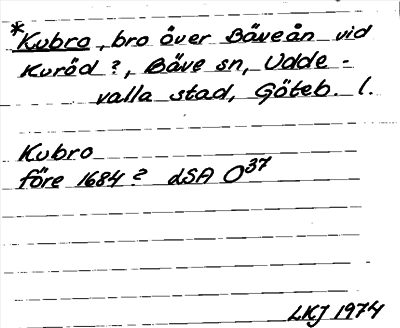 *Kubro, bro över Bäveån vid
Kuröd ?, Bäve sn, Udde-
valla stad, Göteb. l.
Kubro
före 1684 ? dSA O37
LKJ 1974